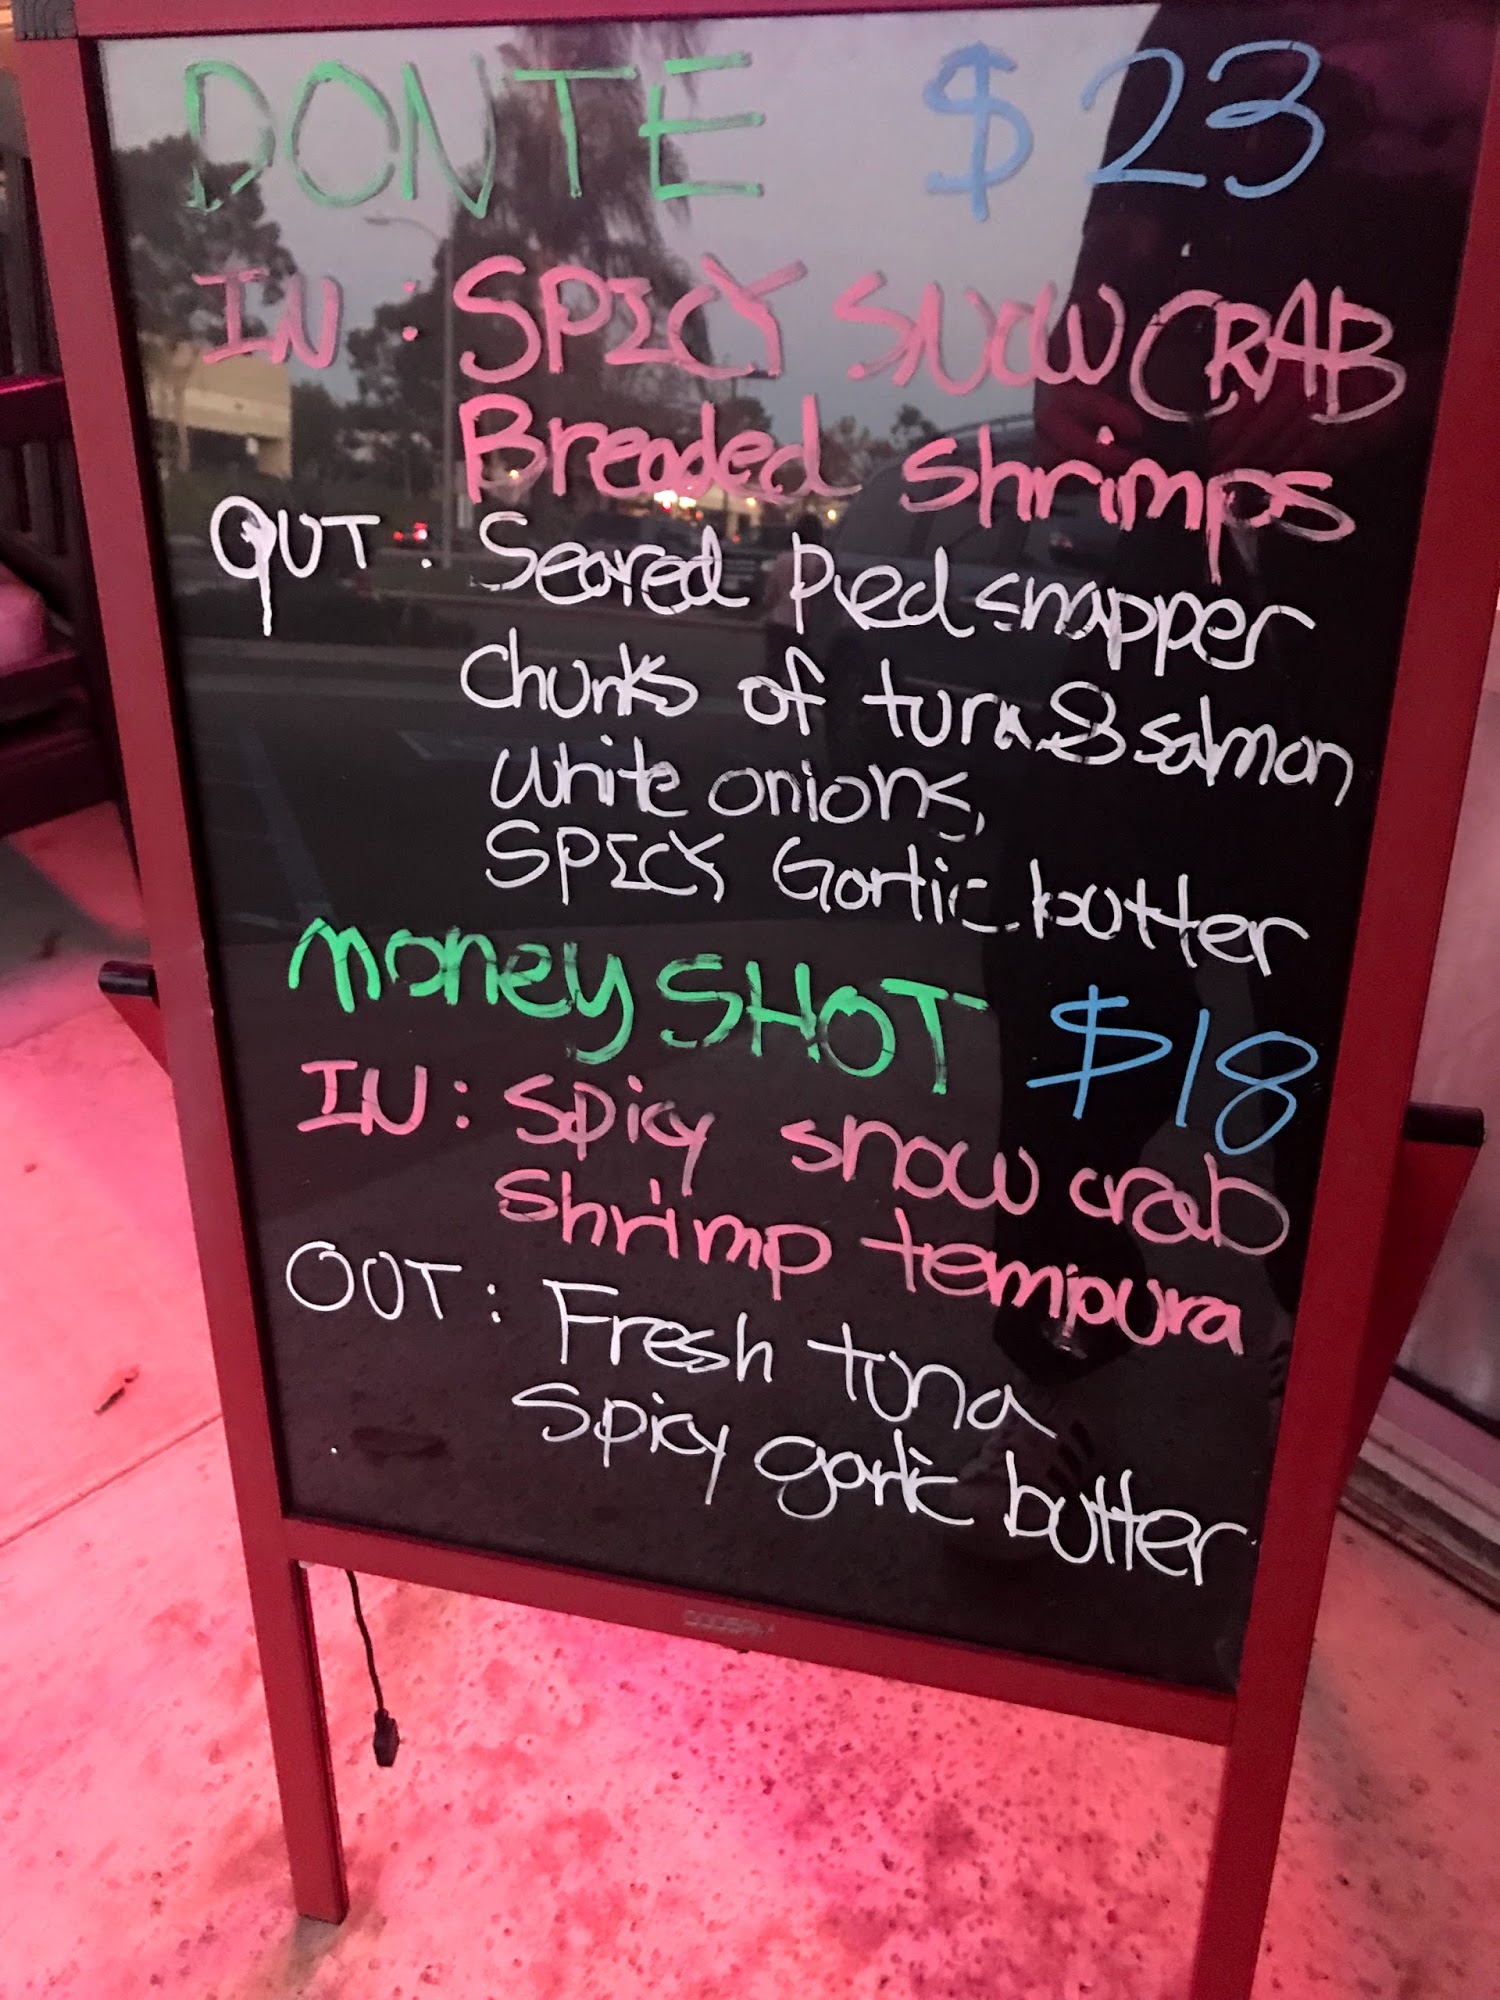 DONTE $23
IN : SPICY SNOW CRAB
Breaded shrimps
OUT : Seared Red snapper
Chunks of tuna & salmon
white onions,
SPICY Garlic butter
money SHOT $18
IN : Spicy snow crab
Shrimp tempura
OUT : Fresh tuna
Spicy garlic butter